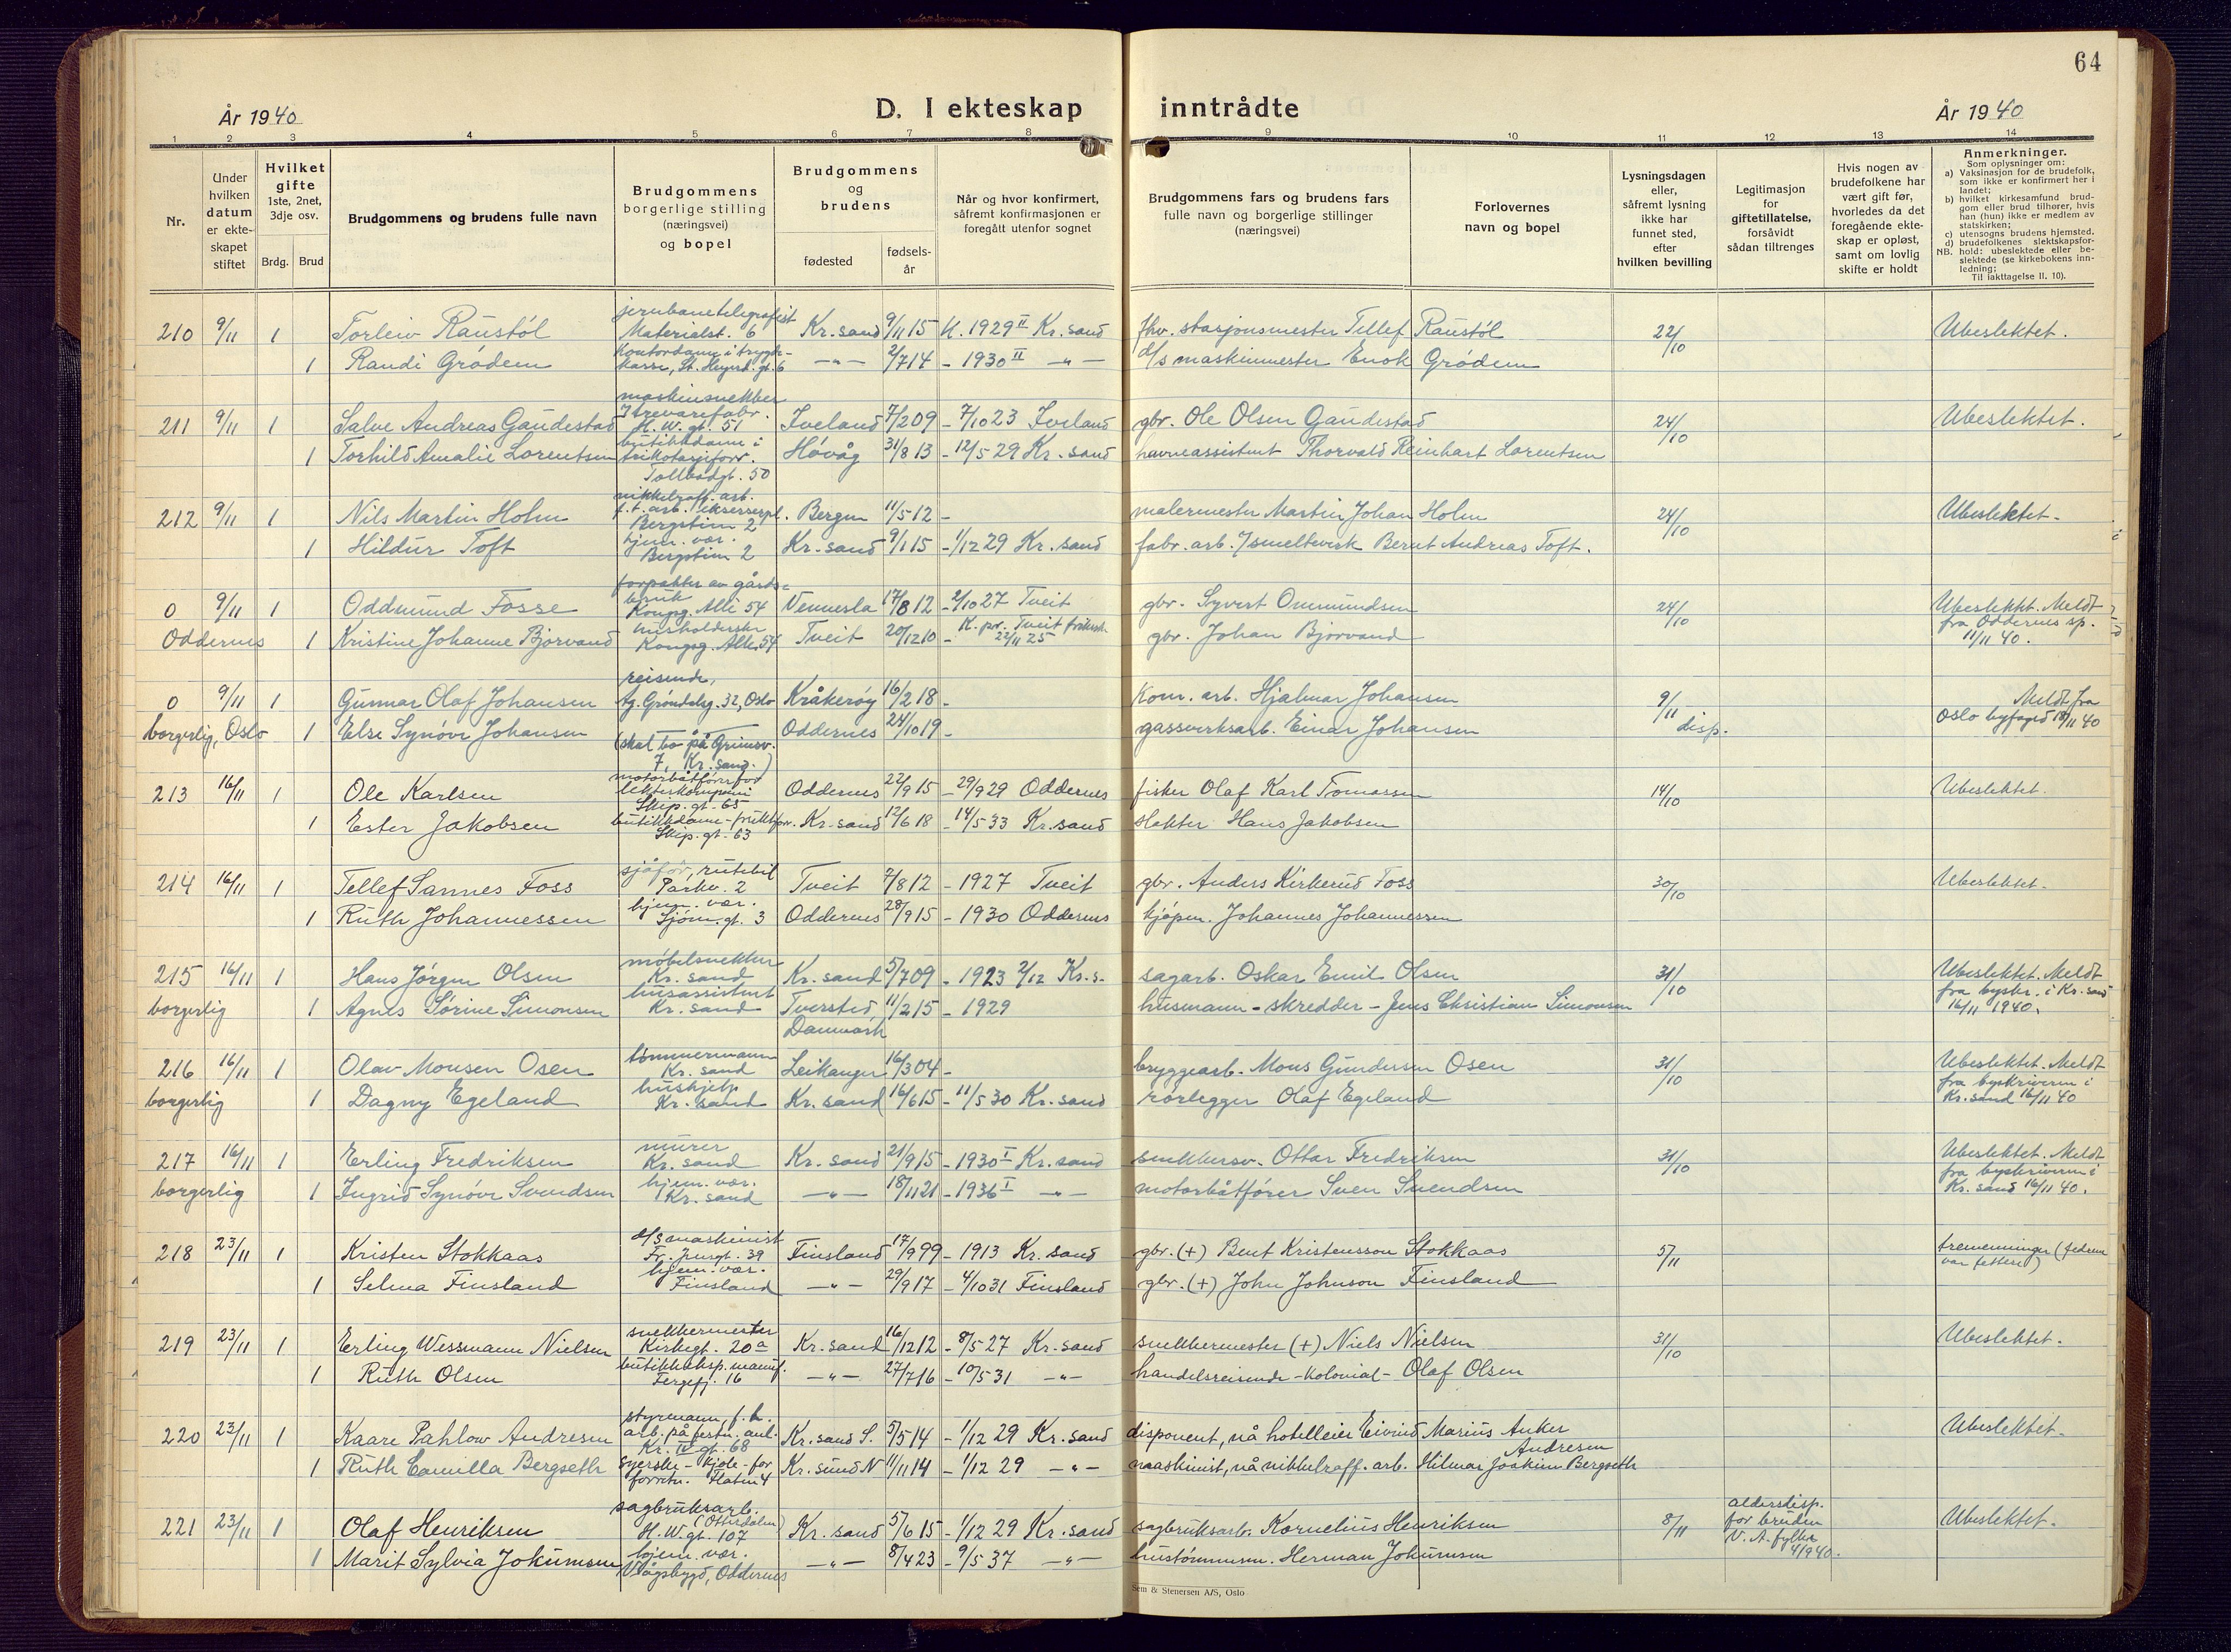 64
År 1940
D. I ekteskap inntrådte
År 1940
1 2 3 4 5 6 7 8 9 10 11 12 13 14
Nr.
Under hvilken datum er ekte-skapet stiftet
Hvilket gifte 1ste, 2net, 3dje osv.
Brdg. Brud
Brudgommens og brudens fulle navn
Brudgommens borgerlige stilling (næringsvei) og bopel
Brudgommens og brudens
fødested
fødsels-år
Når og hvor konfirmert, såfremt konfirmasjonen er foregått utenfor sognet
Brudgommens fars og brudens fars fulle navn og borgerlige stillinger (næringsvei)
Forlovernes navn og bopel
Lysningsdagen eller, såfremt lysning ikke har funnet sted, efter hvilken bevilling
Legitimasjon for giftetillatelse, forsåvidt sådan tiltrenges
Hvis nogen av brudefolkene har vært gift før, hvorledes da det foregående ekte-skap er opløst, samt om lovlig skifte er holdt
Anmerkninger.
Som oplysninger om:
a) Vaksinasjon for de brudefolk, som ikke er konfirmert her i landet;
b) hvilket kirkesamfund brud-gom eller brud tilhører, hvis han (hun) ikke er medlem av statskirken;
c) utensogns brudens hjemsted.
d) brudefolkenes slektskapsfor-hold: ubeslektede eller be-slektede (se kirkebokens inn-ledning;
NB. Til iakttagelse II. 10).
210 9/11 1 Torleiv Raustøl jernbanetelegrafist Materialst. 6 Kr.sand 9/11 15 K. 1929 II Kr.sand fhv. stasjonsmester Tellef Raustøl 22/10 Ubeslektet.
1 Randi Grødem kontordame i trygde-kasse, St. Hansd. gt. 6 -"- 2/7 14 - 1930 II -"- d/s maskinmester Enok Grødem
211 9/11 1 Salve Andreas Gaudestad maskinsnekker Trevarefabr. H.W.gt. 51 Iveland 7/2 09 - 7/10 23 Iveland gbr. Ole Olsen Gaudestad 24/10 Ubeslektet.
1 Torhild Amalie Lorentsen butikkdame i trikotasjeforr. Tollbodgt. 50 Høvåg 31/8 13 - 12/5 29 Kr.sand havneassistent Thorvald Reinhart Lorentsen
212 9/11 1 Nils Martin Holm nikkelraff. arb. f.t. arb. ekserserpl. Bergstien 2 Bergen 11/5 12 - malermester Martin Johan Holm 24/10 Ubeslektet.
1 Hildur Toft hjem. vær. Bergstien 2 Kr.sand 9/1 15 - 1/12 29 Kr.sand fabr. arb. Ismeltverk Bernt Andreas Toft.
0 9/11 1 Oddmund Fosse forpakter av gårds-bruk Kongsg. Alle 54 Vennesla 17/8 12 - 2/10 27 Tveit gbr. Syvert Ommundsen 24/10 Ubeslektet. Meldt fra Oddernes sp. 11/11 40.
Oddernes 1 Kristine Johanne Bjorvand husholderske Kongsg. Alle 54 Tveit 20/12 10 - K. pr. Tveit frikirk 22/11 25 gbr. Johan Bjorvand
0 9/11 1 Gunnar Olaf Johansen reisende, Ag. Grøndalsg. 32, Oslo Kråkerøy 16/2 18 - kom. arb. Hjalmar Johansen 9/11 disp. Meldt fra Oslo byfoged 18/11 40
borgerlig, Oslo 1 Else Synøve Johansen (skal bo på Grimsv. 7, Kr.sand.) Oddernes 24/10 19 - gassverksarb. Einar Johansen
213 16/11 1 Ole Karlsen motorbåtfører Skip.gt. 65 Oddernes 22/9 15 - 29/9 29 Oddernes fisker Olaf Karl Tomassen 14/10 Ubeslektet.
1 Ester Jakobsen butikkdame - fruktforr. Skip.gt. 63 Kr.sand 12/6 18 - 14/5 33 Kr.sand slakter Hans Jakobsen
214 16/11 1 Tellef Sannes Foss sjåfør, rutebil Parkv. 2 Tveit 7/8 12 - 1927 Tveit gbr. Anders Kirkerud Foss 30/10 Ubeslektet.
1 Ruth Johannessen hjem. vær. Sjøm.gt. 3 Oddernes 28/9 15 - 1930 Oddernes kjøpm. Johannes Johannessen
215 16/11 1 Hans Jørgen Olsen møbelsnekker Kr.sand Kr.sand 5/7 09 - 1923 2/12 Kr.s. sagarb. Oskar Emil Olsen 31/10 Ubeslektet. Meldt fra byskr. i Kr.sand 16/11 1940.
borgerlig 1 Agnes Sørine Simonsen husassistent Kr.sand Tversted, Danmark 11/2 15 - 1929 husmann - skredder - Jens Christian Simonsen
216 16/11 1 Olav Monsen Osen tømmermann Kr.sand Leikanger 16/3 04 - bryggearb. Mons Gundersen Osen 31/10 Ubeslektet. Meldt fra byskriveren i Kr.sand 16/11 40
borgerlig 1 Dagny Egeland hushjelp Kr.sand Kr.sand 16/6 15 - 11/5 30 Kr.sand rørlegger Olaf Egeland
217 16/11 1 Erling Fredriksen murer Kr.sand Kr.sand 21/9 15 - 1930 I Kr.sand snekkersv. Ottar Fredriksen 31/10 Ubeslektet. Meldt fra byskriveren i Kr.sand 16/11 40.
borgerlig 1 Ingrid Synøve Svendsen hjem. vær. Kr.sand -"- 18/11 21 - 1936 I -"- motorbåtfører Sven Svendsen
218 23/11 1 Kristen Stokkaas d/s maskinist Fr. Fransgt. 39 Finsland 17/9 99 - 1913 Kr.sand gbr. (+) Bent Kristensson Stokkaas 5/11 tremenninger (fedrene var fettere)
1 Selma Finsland hjem. vær. Finsland -"- 29/9 17 - 4/10 31 Finsland gbr. (+) John Johnson Finsland
219 23/11 1 Erling Wessmann Nielsen snekkermester Kirkegt. 20a Kr.sand 16/12 12 - 8/5 27 Kr.sand snekkermester (+) Niels Nielsen 31/10 Ubeslektet.
1 Ruth Olsen butikkeksp. manuf. Fergefj. 16 -"- 27/7 16 - 10/5 31 -"- handelsreisende - kolonial - Olaf Olsen
220 23/11 1 Kaare Pahlow Andresen styrmann, f.t. arb. på festn. anl. Kr. IV gt. 68 Kr.sand S. 5/5 14 - 1/12 29 Kr.sand disponent, nå hotelleier Eivind Marius Anker Andresen Ubeslektet.
1 Ruth Camilla Bergseth syerske - kjole - for forretn. Flaten 4 Kr.sund N 11/11 14 - 1/12 29 -"- maskinist, nå nikkelraff. arb. Hilmar Joakim Bergseth
221 23/11 1 Olaf Henriksen sagbruksarb. (Otterdalen) H.W.gt. 107 Kr.sand 5/6 15 - 1/12 29 Kr.sand sagbruksarb. Kornelius Henriksen 8/11 aldersdisp. for bruden V.A. fylke 4/9 40. Ubeslektet.
1 Marit Sylvia Jokumsen hjem. vær. Vågsbygd, Oddernes -"- 8/4 23 - 9/5 37 -"- hustømmerm. Herman Jokumsen
Sem & Stenersen A/S, Oslo